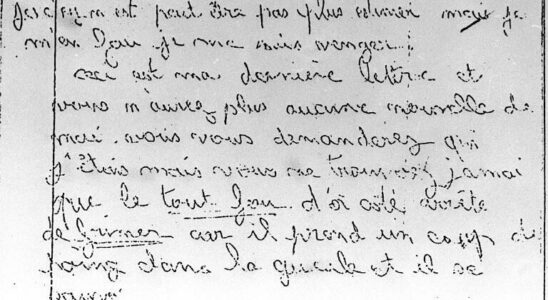 n'est peut être pas plus estimer mais je
m'en fou je me suis venger.
ceci est ma dernière lettre et
vous n'aurez plus aucune nouvelle de
moi. vous vous demanderez qui
j'étais mais vous ne trouverez jamai
que le tout fou d'a coté arrête
de frimer car il prend un coup de
poing dans la gueule et il se